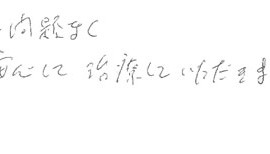 問題なく
安心して 治療していただきま